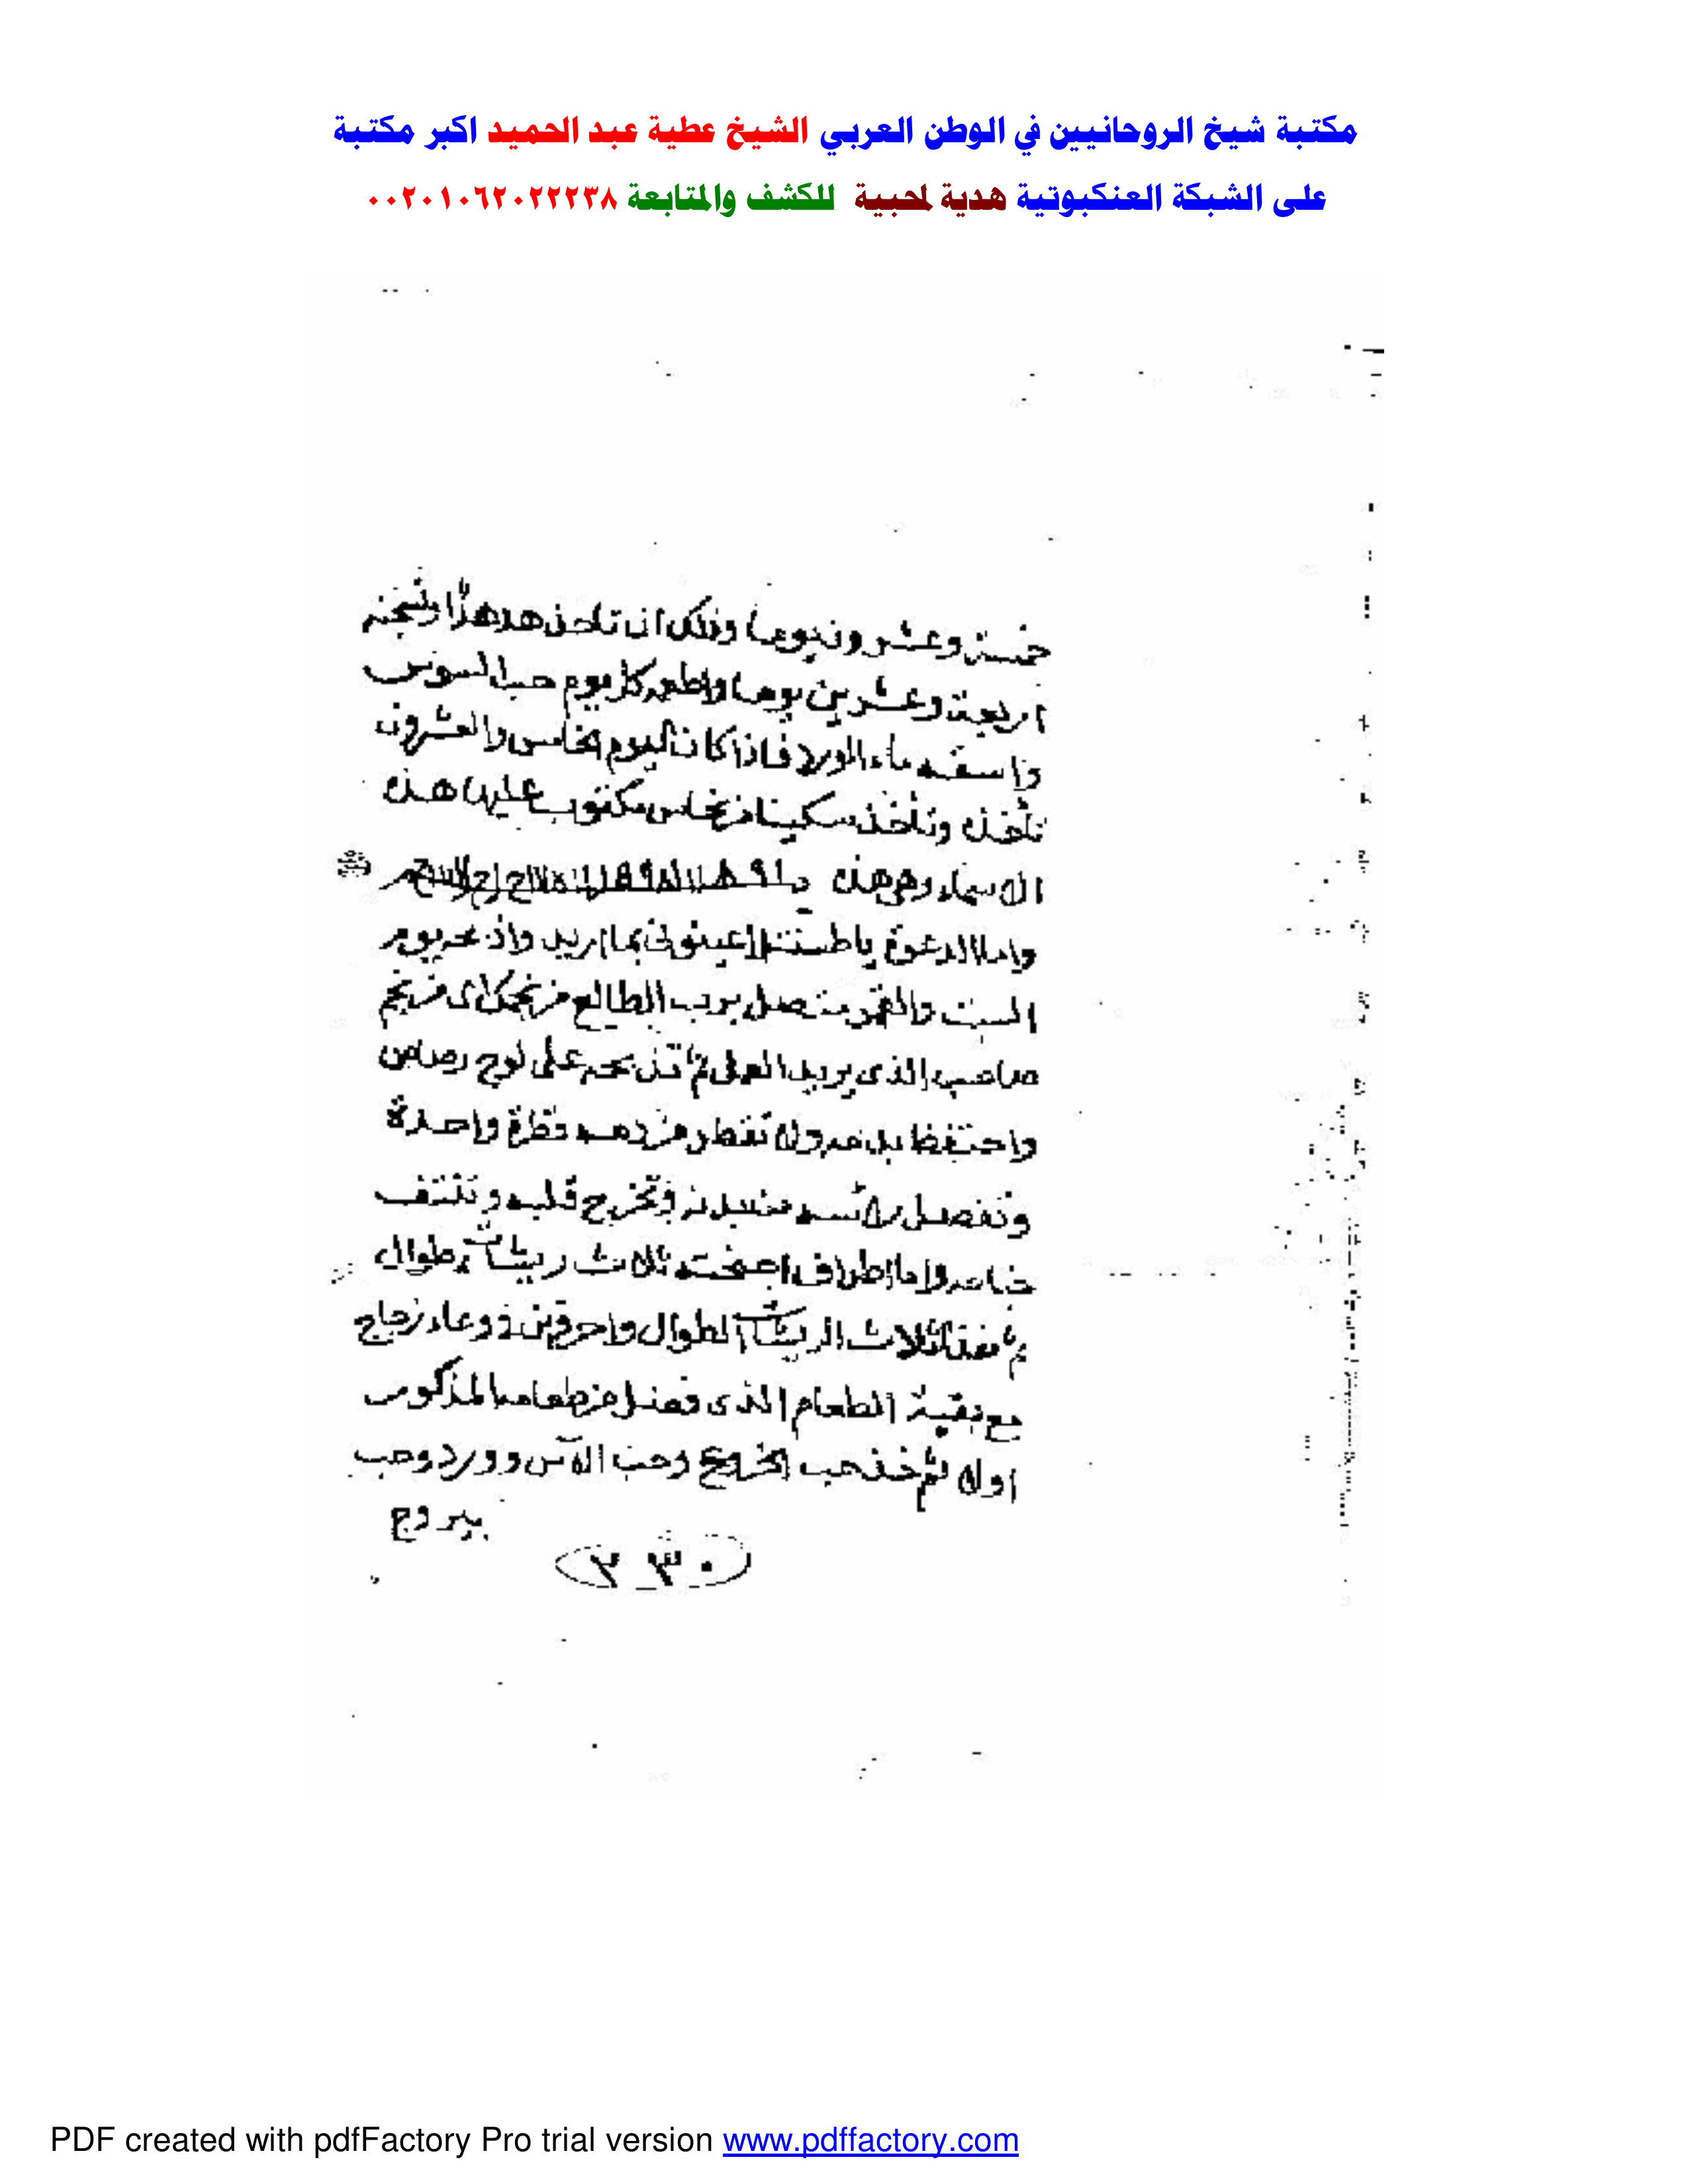 مكتبة شيخ الروحانيين في الوطن العربي الشيخ عطية عبد الحميد اكبر مكتبة
على الشبكة العنكبوتية هدية لمحبية للكشف والمتابعة ٠٠٢٠١٠٦٢٠٢٢٢٣٨
خمسة وعشرون يوما وذلك ان تاخذ هدهدا وتسجنه
اربعة وعشرين يوما واطعمه كل يوم حب السوس
واسقه ماء الورد فاذا كان اليوم الخامس والعشرون
تأخذه وتأخذ سكينا من نحاس مكتوب عليها هذه
الاسماء وهي هذه
واما الدعوة يا اعينوني بما اريد واذبحه يوم
السبت والقمر متصل برب الطالع من نجمك اى من نجم
صاحب الذى يريد العمل ثم تذبحه على لوح رصاص
واحتفظ بدمه ولا تقطر من دمه قطرة واحدة
وتفصل رأسه من بدنه وتخرج قلبه وتنتف
اطراف اجنحته ثلاث ريشات طوال
ثم خذ الثلاث الريشات الطوال واحرقهن في وعاء زجاج
مع بقية الطعام الذى فضل من طعامه المذكور
اولا ثم خذ حب الخروع وحب الآس وورد وحب
يبروج
٢٣٠
PDF created with pdfFactory Pro trial version www.pdffactory.com